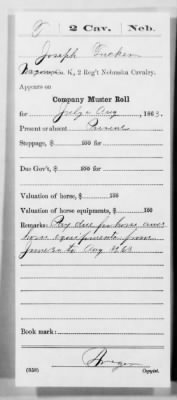 T | 2 Cav. | Neb.
Joseph Tucker
Wagoner, Co. K, 2 Reg't Nebraska Cavalry.
Appears on
Company Muster Roll
for July & Aug, 1863.
Present or absent Present
Stoppage, $ 100 for
Due Gov't, $ 100 for
Valuation of horse, $ 100
Valuation of horse equipments, $ 100
Remarks: Pay due for horse and
horse equipments from
to Aug 31 63
Book mark:
(358) Copyist.